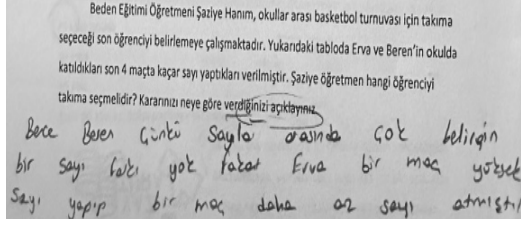 Beden Eğitimi Öğretmeni Şaziye Hanım, okullar arası basketbol turnuvası için takıma
seçeceği son öğrenciyi belirlemeye çalışmaktadır. Yukarıdaki tabloda Erva ve Beren'in okulda
katıldıkları son 4 maçta kaçar sayı yaptıkları verilmiştir. Şaziye öğretmen hangi öğrenciyi
takıma seçmelidir? Kararınızı neye göre verdiğinizi açıklayınız.
Bece Beren Çünkü Sayıla arasında Çok belirgin
bir sayı farkı yok fakat Erva bir maç yüksek
Sayı yapıp bir maç daha az sayı atmıştı